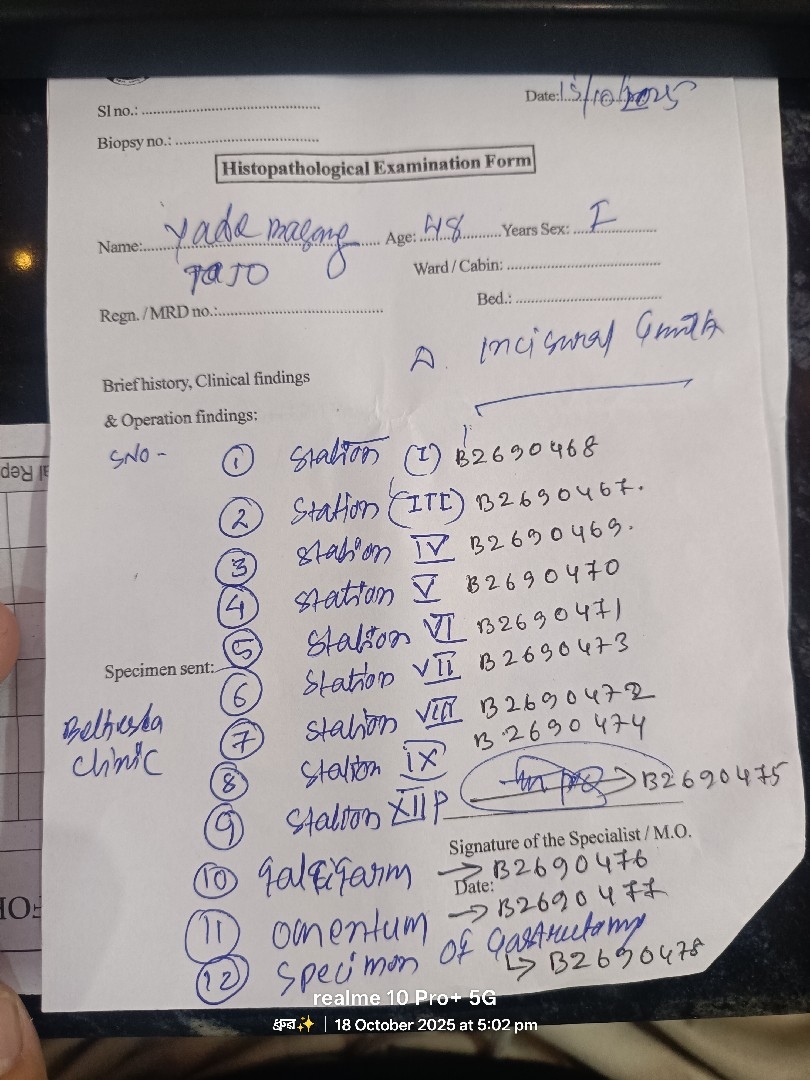 Date: 15/10/2025
Sl no.:
Biopsy no.:
Histopathological Examination Form
Name: Yade Age: 48 Years Sex: F
TaJO
Ward / Cabin:
Regn. / MRD no.:
Bed.:
Incisural Growth
Brief history, Clinical findings
& Operation findings:
SNO - ① Station (I) B2690468
② Station (III) B2690467.
③ Station IV B2690469.
④ Station V B2690470
⑤ Station VI B2690471
Specimen sent:
⑥ Station VII B2690473
⑦ Station VIII B2690472
Clinic
⑧ Station IX B2690474
⑨ Station XII P B2690475
Signature of the Specialist / M.O.
⑩ falcifarm → B2690476
Date:
⑪ omentum → B2690477
⑫ specimen of Gastrectomy
↳ B2690478
realme 10 Pro+ 5G
18 October 2025 at 5:02 pm